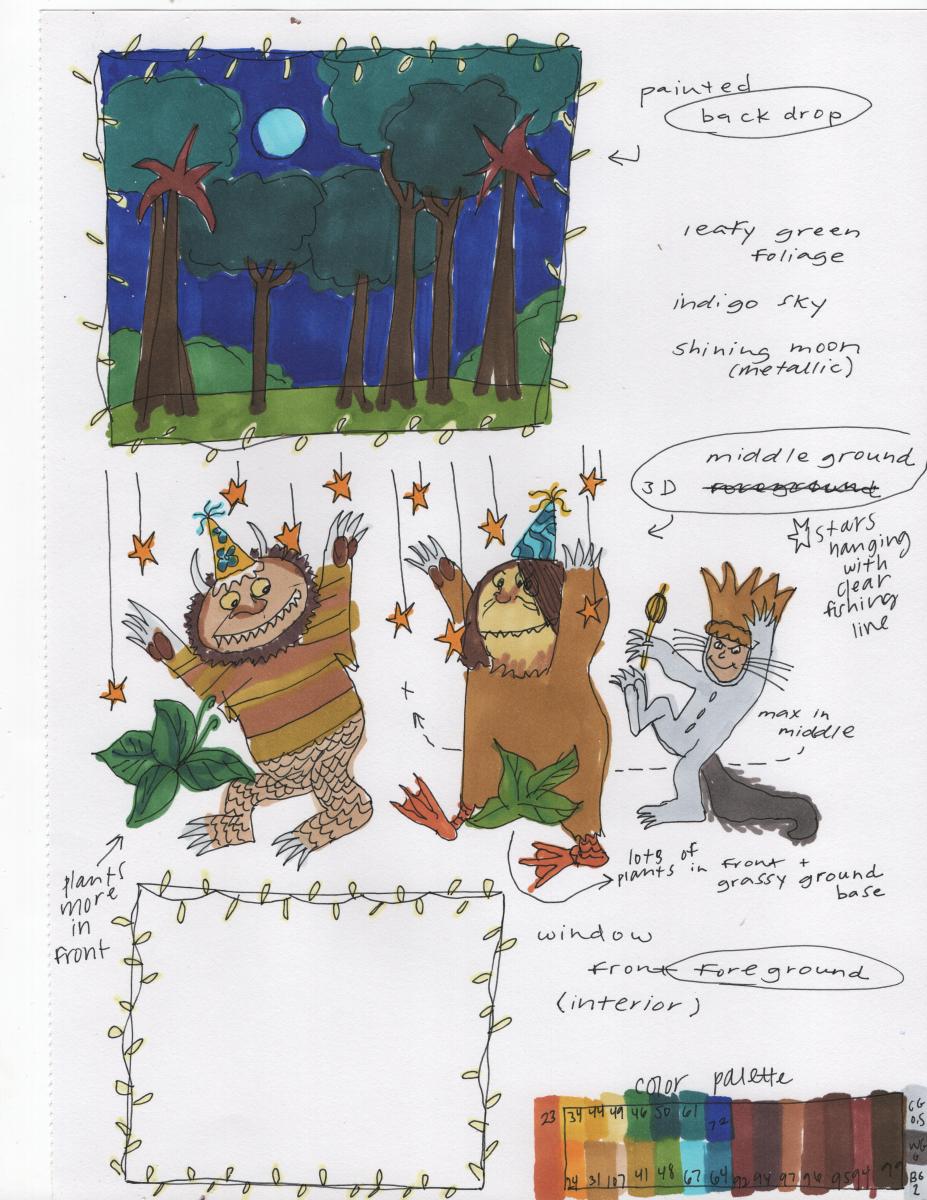 painted
back drop
leafy green
foliage
indigo sky
shining moon
(metallic)
middle ground
3D foreground
stars
hanging
with
clear
fishing
line
max in
middle
lots of
plants in front +
grassy ground
base
plants
more
in
front
window
front foreground
(interior)
color palette
23 34 44 49 46 50 61 72
24 31 107 41 48 67 64 92 94 97 96 95 94 99
CG
0.5
WG
BG
2